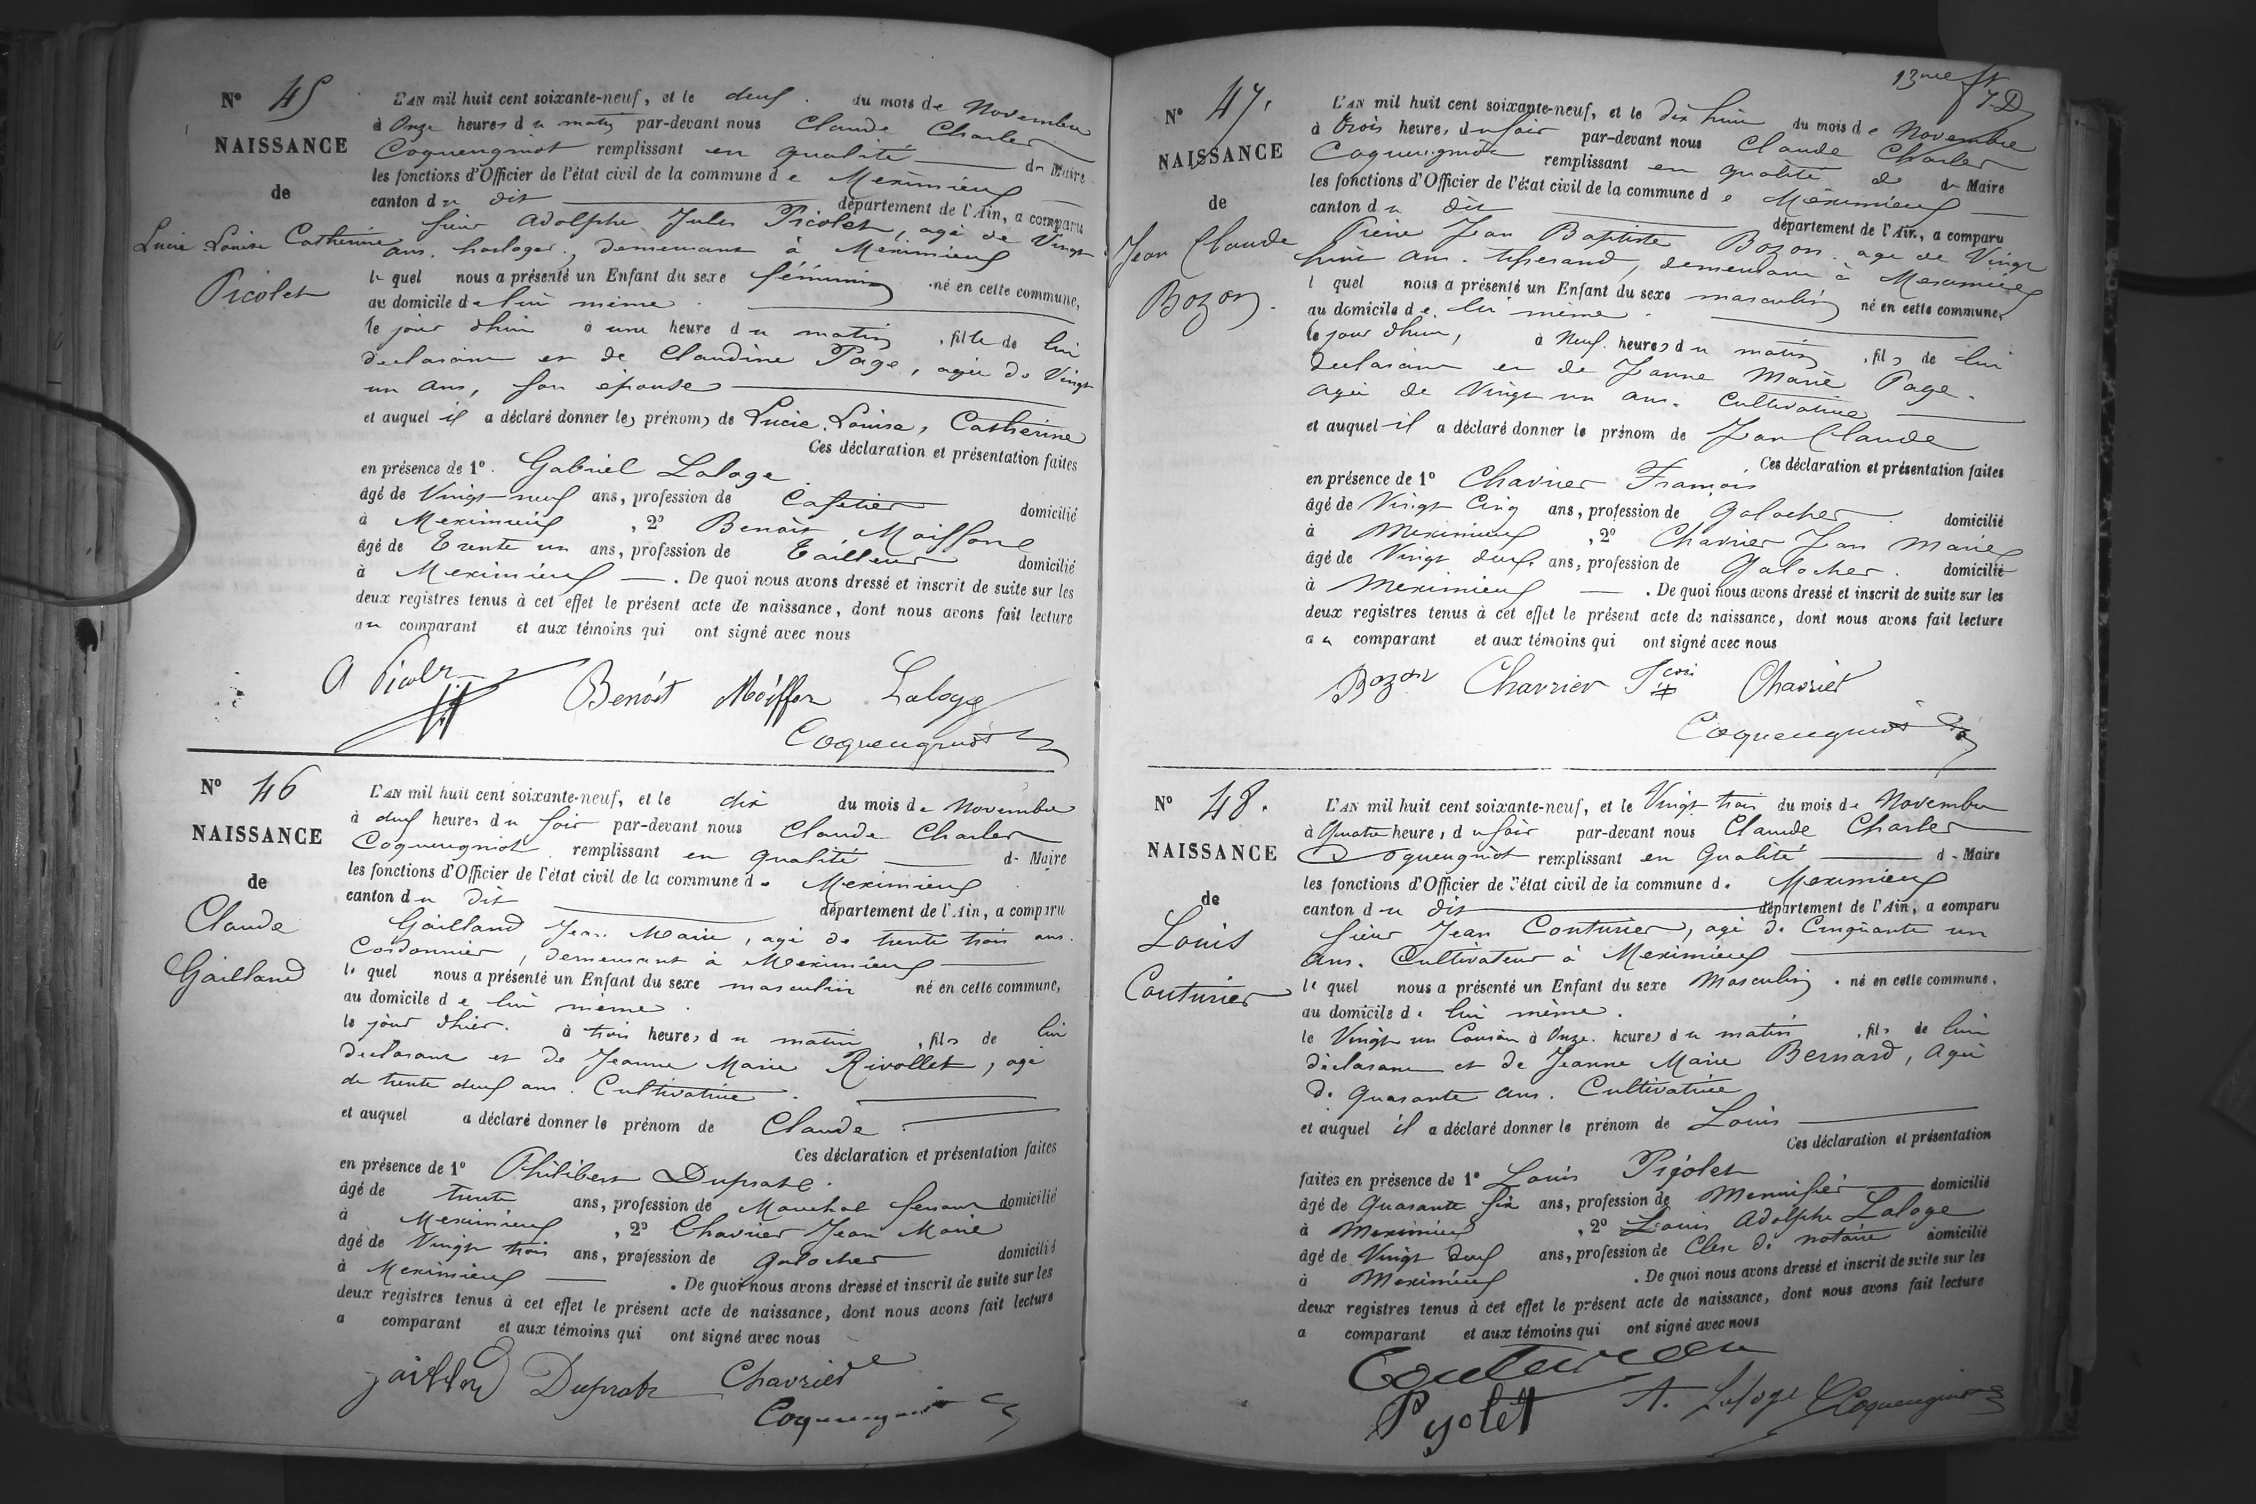 N° 45
NAISSANCE
de
Lucie Louise Catherine
Picolet
L'AN mil huit cent soixante-neuf, et le deux du mois de Novembre
à Onze heures du matin par-devant nous Claude Charles
Coqueugniot remplissant en qualité de Maire
les fonctions d'Officier de l'état civil de la commune de Meximieux
canton du dit département de l'Ain, a comparu
sieur Adolphe Jules Picolet, agé de Vingt
ans, horloger, demeurant à Meximieux
lequel nous a présenté un Enfant du sexe féminin né en cette commune,
au domicile de lui même
le jour d'hui à une heure du matin, fille de lui
declarant et de Claudine Page, agée de Vingt
un ans, son épouse
et auquel il a déclaré donner les prénoms de Lucie, Louise, Catherine
Ces déclaration et présentation faites
en présence de 1° Gabriel Laloge
âgé de Vingt neuf ans, profession de Cafetier domicilié
à Meximieux, 2° Benoit Moiffon
âgé de Trente un ans, profession de Tailleur domicilié
à Meximieux. De quoi nous avons dressé et inscrit de suite sur les
deux registres tenus à cet effet le présent acte de naissance, dont nous avons fait lecture
au comparant et aux témoins qui ont signé avec nous
A Picolet Benoit Moiffon Laloge
Coqueugniot
N° 46
NAISSANCE
de
Claude
Gailland
L'AN mil huit cent soixante-neuf, et le dix du mois de Novembre
à deux heures du soir par-devant nous Claude Charles
Coqueugniot remplissant en qualité de Maire
les fonctions d'Officier de l'état civil de la commune de Meximieux
canton du dit département de l'Ain, a comparu
Gailland Jean Marie, agé de trente trois ans.
Cordonnier, demeurant à Meximieux
lequel nous a présenté un Enfant du sexe masculin né en cette commune,
au domicile de lui même.
le jour d'hier. à trois heures du matin, fils de lui
declarant et de Jeanne Marie Rivollet, agé
de trente deux ans. Cultivatrice.
et auquel a déclaré donner le prénom de Claude.
Ces déclaration et présentation faites
en présence de 1° Philibert Duprat
âgé de trente ans, profession de Marechal ferrant domicilié
à Meximieux, 2° Chavrier Jean Marie
âgé de Vingt trois ans, profession de Galocher domicilié
à Meximieux. De quoi nous avons dressé et inscrit de suite sur les
deux registres tenus à cet effet le présent acte de naissance, dont nous avons fait lecture
a comparant et aux témoins qui ont signé avec nous
gailland Duprat Chavrier
Coqueugniot
13me
N° 47.
NAISSANCE
de
Jean Claude
Bozon.
L'AN mil huit cent soixante-neuf, et le dix huit du mois de Novembre
à trois heures du soir par-devant nous Claude Charles
Coqueugniot remplissant en qualité de de Maire
les fonctions d'Officier de l'état civil de la commune de Meximieux
canton du dit département de l'Ain, a comparu
Pierre Jean Baptiste Bozon. agé de Vingt
huit ans. tisserand, demeurant à Meximieux
lequel nous a présenté un Enfant du sexe masculin né en cette commune,
au domicile de lui même.
le jour d'hui, à Neuf heures du matin, fils de lui
declarant et de Jeanne Marie Page.
agée de Vingt un ans. Cultivatrice
et auquel il a déclaré donner le prénom de Jean Claude
Ces déclaration et présentation faites
en présence de 1° Chavrier François
âgé de Vingt Cinq ans, profession de Galocher. domicilié
à Meximieux, 2° Chavrier Jean Marie
âgé de Vingt deux ans, profession de Galocher. domicilié
à Meximieux. De quoi nous avons dressé et inscrit de suite sur les
deux registres tenus à cet effet le présent acte de naissance, dont nous avons fait lecture
au comparant et aux témoins qui ont signé avec nous
Bozon Chavrier Fcois Chavrier
Coqueugniot
N° 48.
NAISSANCE
de
Louis
Couturier
L'AN mil huit cent soixante-neuf, et le Vingt trois du mois de Novembre
à Quatre heures du soir par-devant nous Claude Charles
Coqueugniot remplissant en Qualité de Maire
les fonctions d'Officier de l'état civil de la commune de Meximieux
canton du dit département de l'Ain, a comparu
sieur Jean Couturier, agé de Cinquante un
ans. Cultivateur à Meximieux
lequel nous a présenté un Enfant du sexe Masculin. né en cette commune,
au domicile de lui même.
le Vingt un Courant à Onze heures du matin, fils de lui
déclarant et de Jeanne Marie Bernard, Agée
de Quarante ans. Cultivatrice
et auquel il a déclaré donner le prénom de Louis
Ces déclaration et présentation
faites en présence de 1° Louis Pigolet
âgé de Quarante six ans, profession de Menuisier domicilié
à Meximieux, 2° Louis Adolphe Laloge
âgé de Vingt deux ans, profession de Clerc de notaire domicilié
à Meximieux. De quoi nous avons dressé et inscrit de suite sur les
deux registres tenus à cet effet le présent acte de naissance, dont nous avons fait lecture
a comparant et aux témoins qui ont signé avec nous
Couturier
Pigolet A. Laloge Coqueugniot